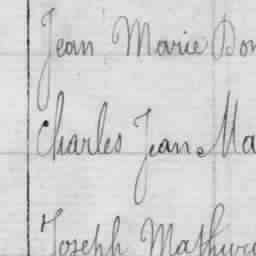 Jean Marie Don
Charles Jean Ma
Joseph Mathur